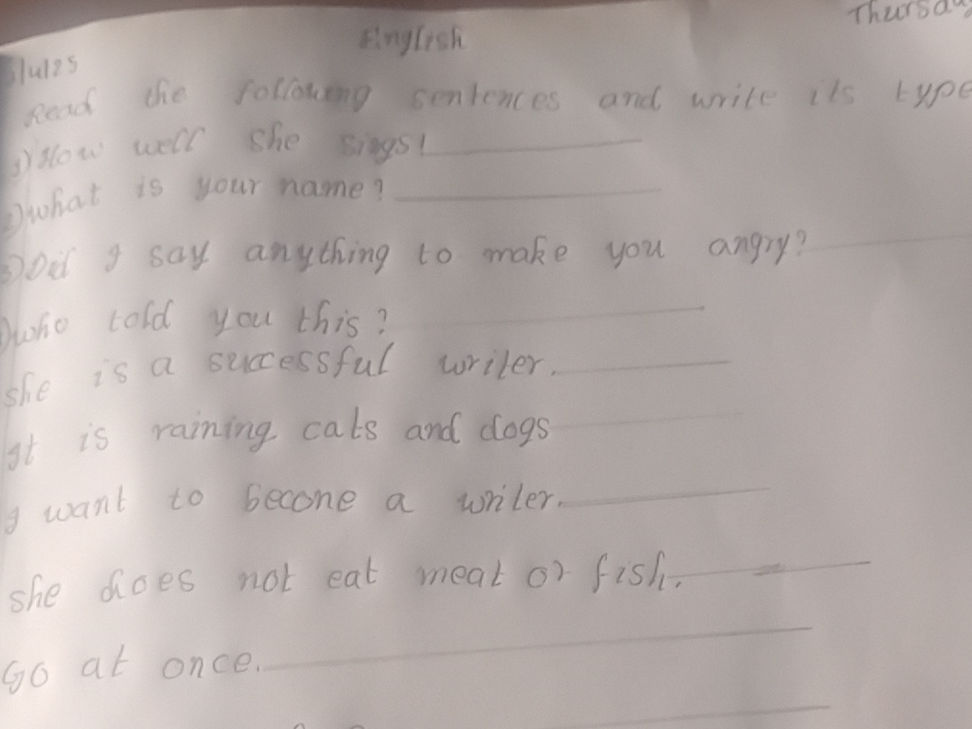 English
Thursday
Read the following sentences and write its type
1) How well she sings!
2) what is your name?
3) Did I say anything to make you angry?
) who told you this?
she is a successful writer.
It is raining cats and dogs
I want to become a writer.
she does not eat meat or fish.
Go at once.